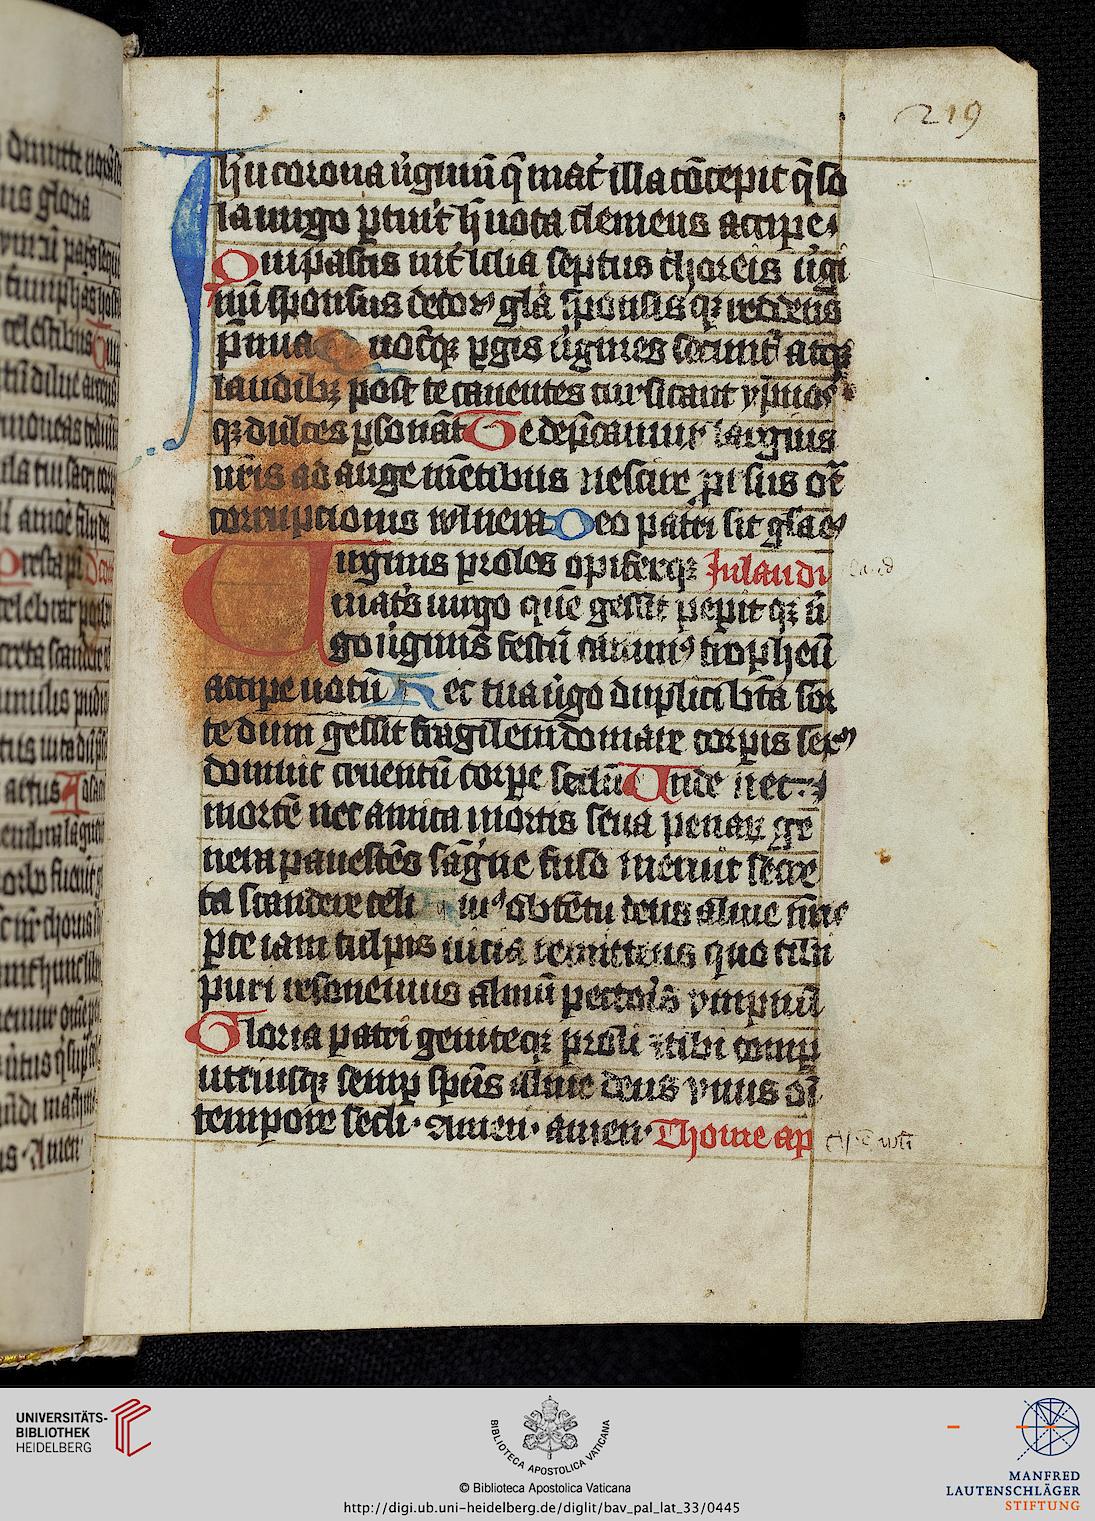 219
Ihu corona v̓ginū q̄ mat̓ illa cōcepit q̄ so
la uirgo ꝑtuit h̄ uota clemens accipe
Qui pascis int̓ lilia septus choreis v̓gi
nū sponsus decor᷒ glā sponsis qꝫ reddens
p̄mia Quocūqꝫ ꝑgis v̓gines secunt̓ atqꝫ
laudibꝫ post te canentes cursitant ympnos
qꝫ dulces ꝑsonāt Te dep̄camur largius
nr̄is ad auge mētibus nescire prorsus oē
corrupcionis wlnera Deo patri sit glā eiꝰ
Uirginis proles opiferqꝫ In laudi
mat̓s uirgo quē gessit peperit qꝫ v̓
go v̓ginis festū canimꝰ tropheū
accipe uotū Hec tua v̓go duplici bt̄a sor
te dum gessit fragilem domare corꝑis sexū
domuit cruentū corꝑe seclū Unde nec
mortē nec amica mortis seua penarꝫ ge
nera pauescēs sāg̓ne fuso meruit secre
ta scandere celi uiꝰ obtētu deus alme nr̄is
ꝑce iam culpis uicia remittens quo tibi
puri resonemus almū pector̓s ympnū
Gloria patri geniteqꝫ proli et tibi comp̄
utriusqꝫ semꝑ sp̄us alme deus vnus oī
tempore secli · Amen · amen · Thome ap
UNIVERSITÄTS-
BIBLIOTHEK
HEIDELBERG
BIBLIOTECA APOSTOLICA VATICANA
© Biblioteca Apostolica Vaticana
http://digi.ub.uni-heidelberg.de/diglit/bav_pal_lat_33/0445
MANFRED
LAUTENSCHLÄGER
STIFTUNG